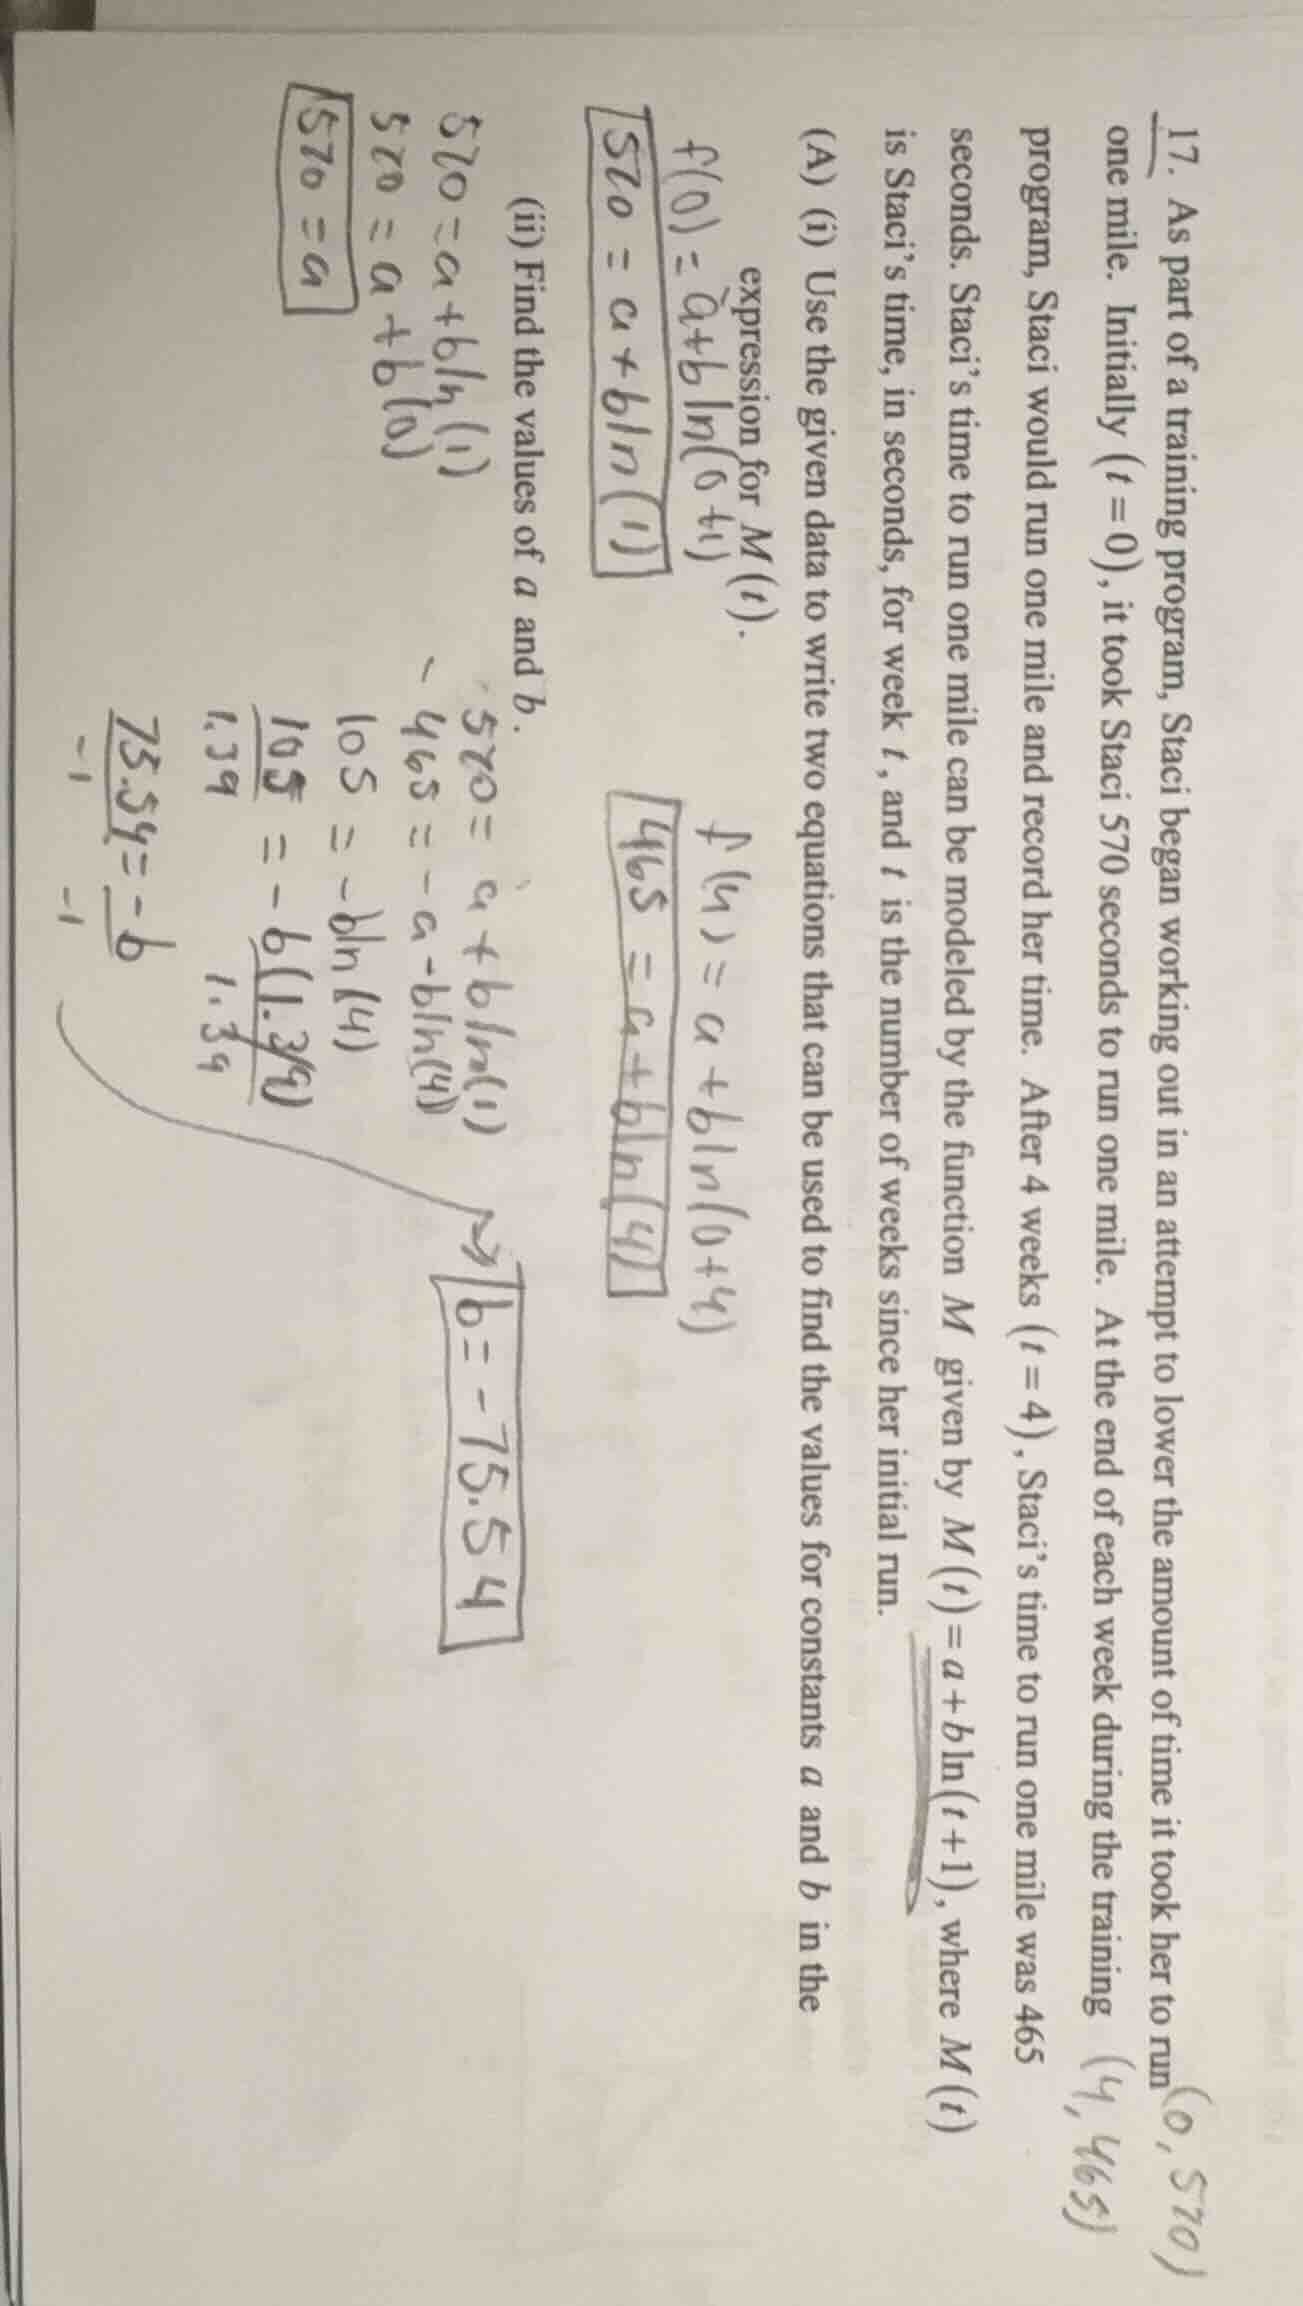 17. As part of a training program, Staci began working out in an attempt to lower the amount of time it took her to run (0, 570)
one mile. Initially (t = 0), it took Staci 570 seconds to run one mile. At the end of each week during the training (4, 465)
program, Staci would run one mile and record her time. After 4 weeks (t = 4), Staci's time to run one mile was 465
seconds. Staci's time to run one mile can be modeled by the function M given by M(t) = a + b ln(t + 1), where M(t)
is Staci's time, in seconds, for week t, and t is the number of weeks since her initial run.
(A) (i) Use the given data to write two equations that can be used to find the values for constants a and b in the
expression for M(t).
f(0) = a + b ln(0 + 1)
570 = a + b ln(1)
f(4) = a + b ln(0 + 4)
465 = a + b ln(4)
(ii) Find the values of a and b.
570 = a + b ln(1)
570 = a + b(0)
570 = a
570 = a + b ln(1)
- 465 = - a - b ln(4)
105 = - b ln(4)
105 = - b(1.39)
1.39 1.39
75.54 = - b
-1 -1
b = - 75.54